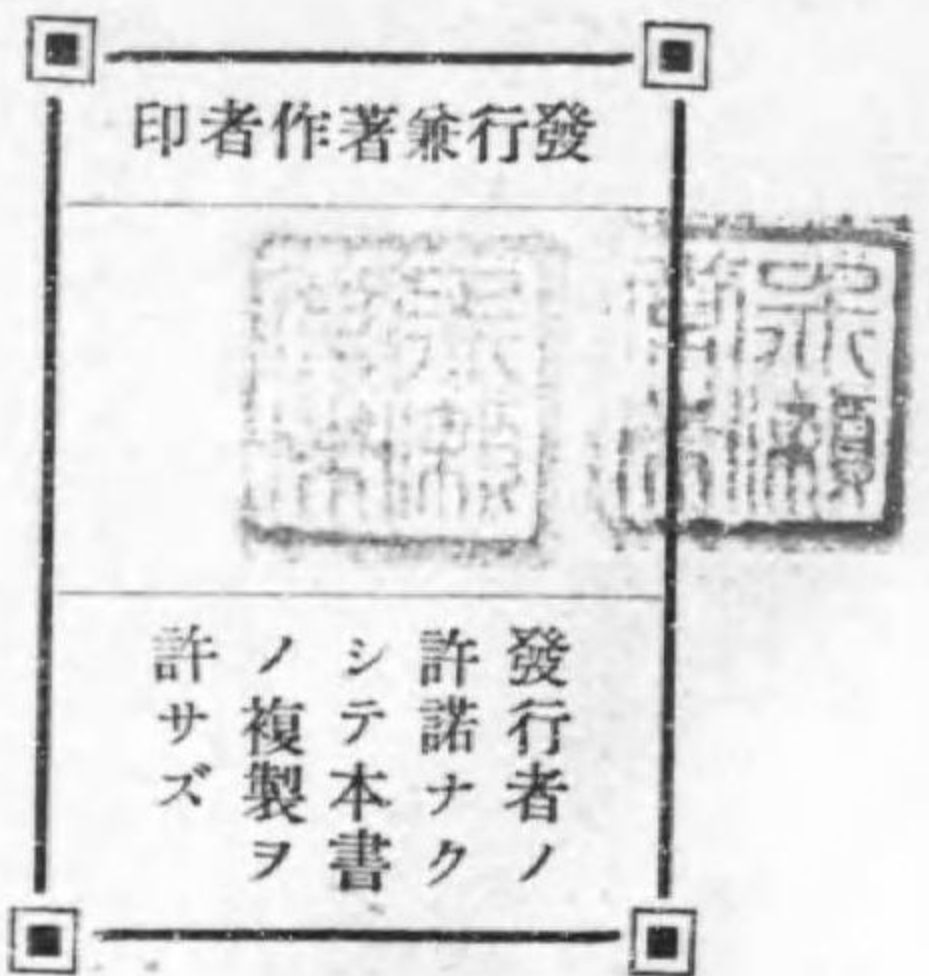 發行兼著作者印
發行者ノ
許諾ナク
シテ本書
ノ複製ヲ
許サズ